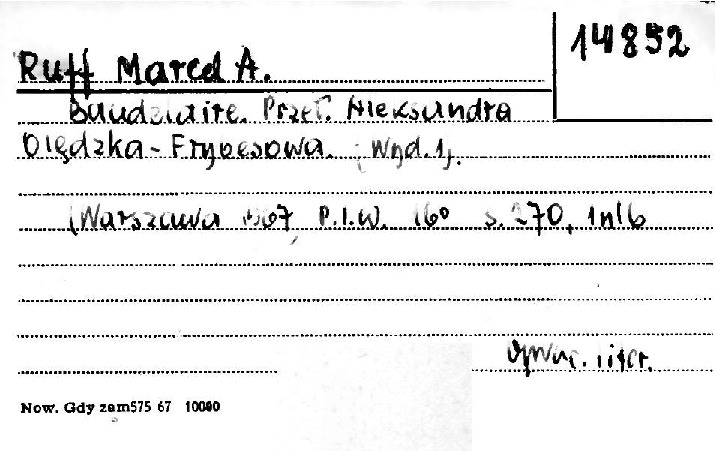 14852
Ruff Marcel A.
Baudelaire. Przeł. Aleksandra
Olędzka-Frybesowa. [Wyd. 1].
[Warszawa 1967 P.I.W. 16° s. 270, 1nlb
liter.
Now. Gdy zam575 67 10000